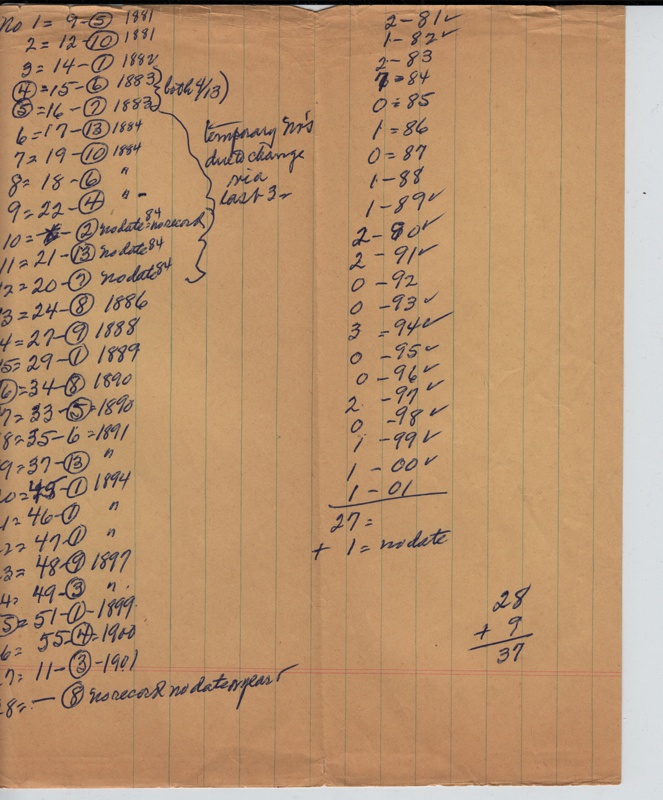 No 1 = 9-⑤ 1881
2 = 12-⑩ 1881
3 = 14-① 1882
④ = 15-⑥ 1883 } (both 4/13)
⑤ = 16-⑦ 1883
6 = 17-⑬ 1884
7 = 19-⑩ 1884
8 = 18-⑥ "
9 = 22-④ "
temporary No's
due to change
via
last 3
10 = - ② no date 84 = no record
11 = 21-⑬ no date 84
2 = 20-⑦ no date 84
3 = 24-⑧ 1886
4 = 27-⑨ 1888
5 = 29-① 1889
⑥ = 34-⑧ 1890
7 = 33-⑤ = 1890
8 = 35-6 = 1891
9 = 37-⑬ "
0 = 45-① 1894
1 = 46-① "
2 = 47-① "
3 = 48-⑨ 1897
4 = 49-③ "
⑤ = 51-①-1899
6 = 55-④-1900
7 = 11-③-1901
28 = — ⑧ no record no date or year
2-81✓
1-82✓
2-83
7=84
0=85
1=86
0=87
1-88
1-89✓
2-90✓
2-91✓
0-92
0-93✓
3=94✓
0-95✓
0-96✓
2-97✓
0-98✓
1-99✓
1-00✓
1-01
27=
+ 1 = no date
28
+ 9
37